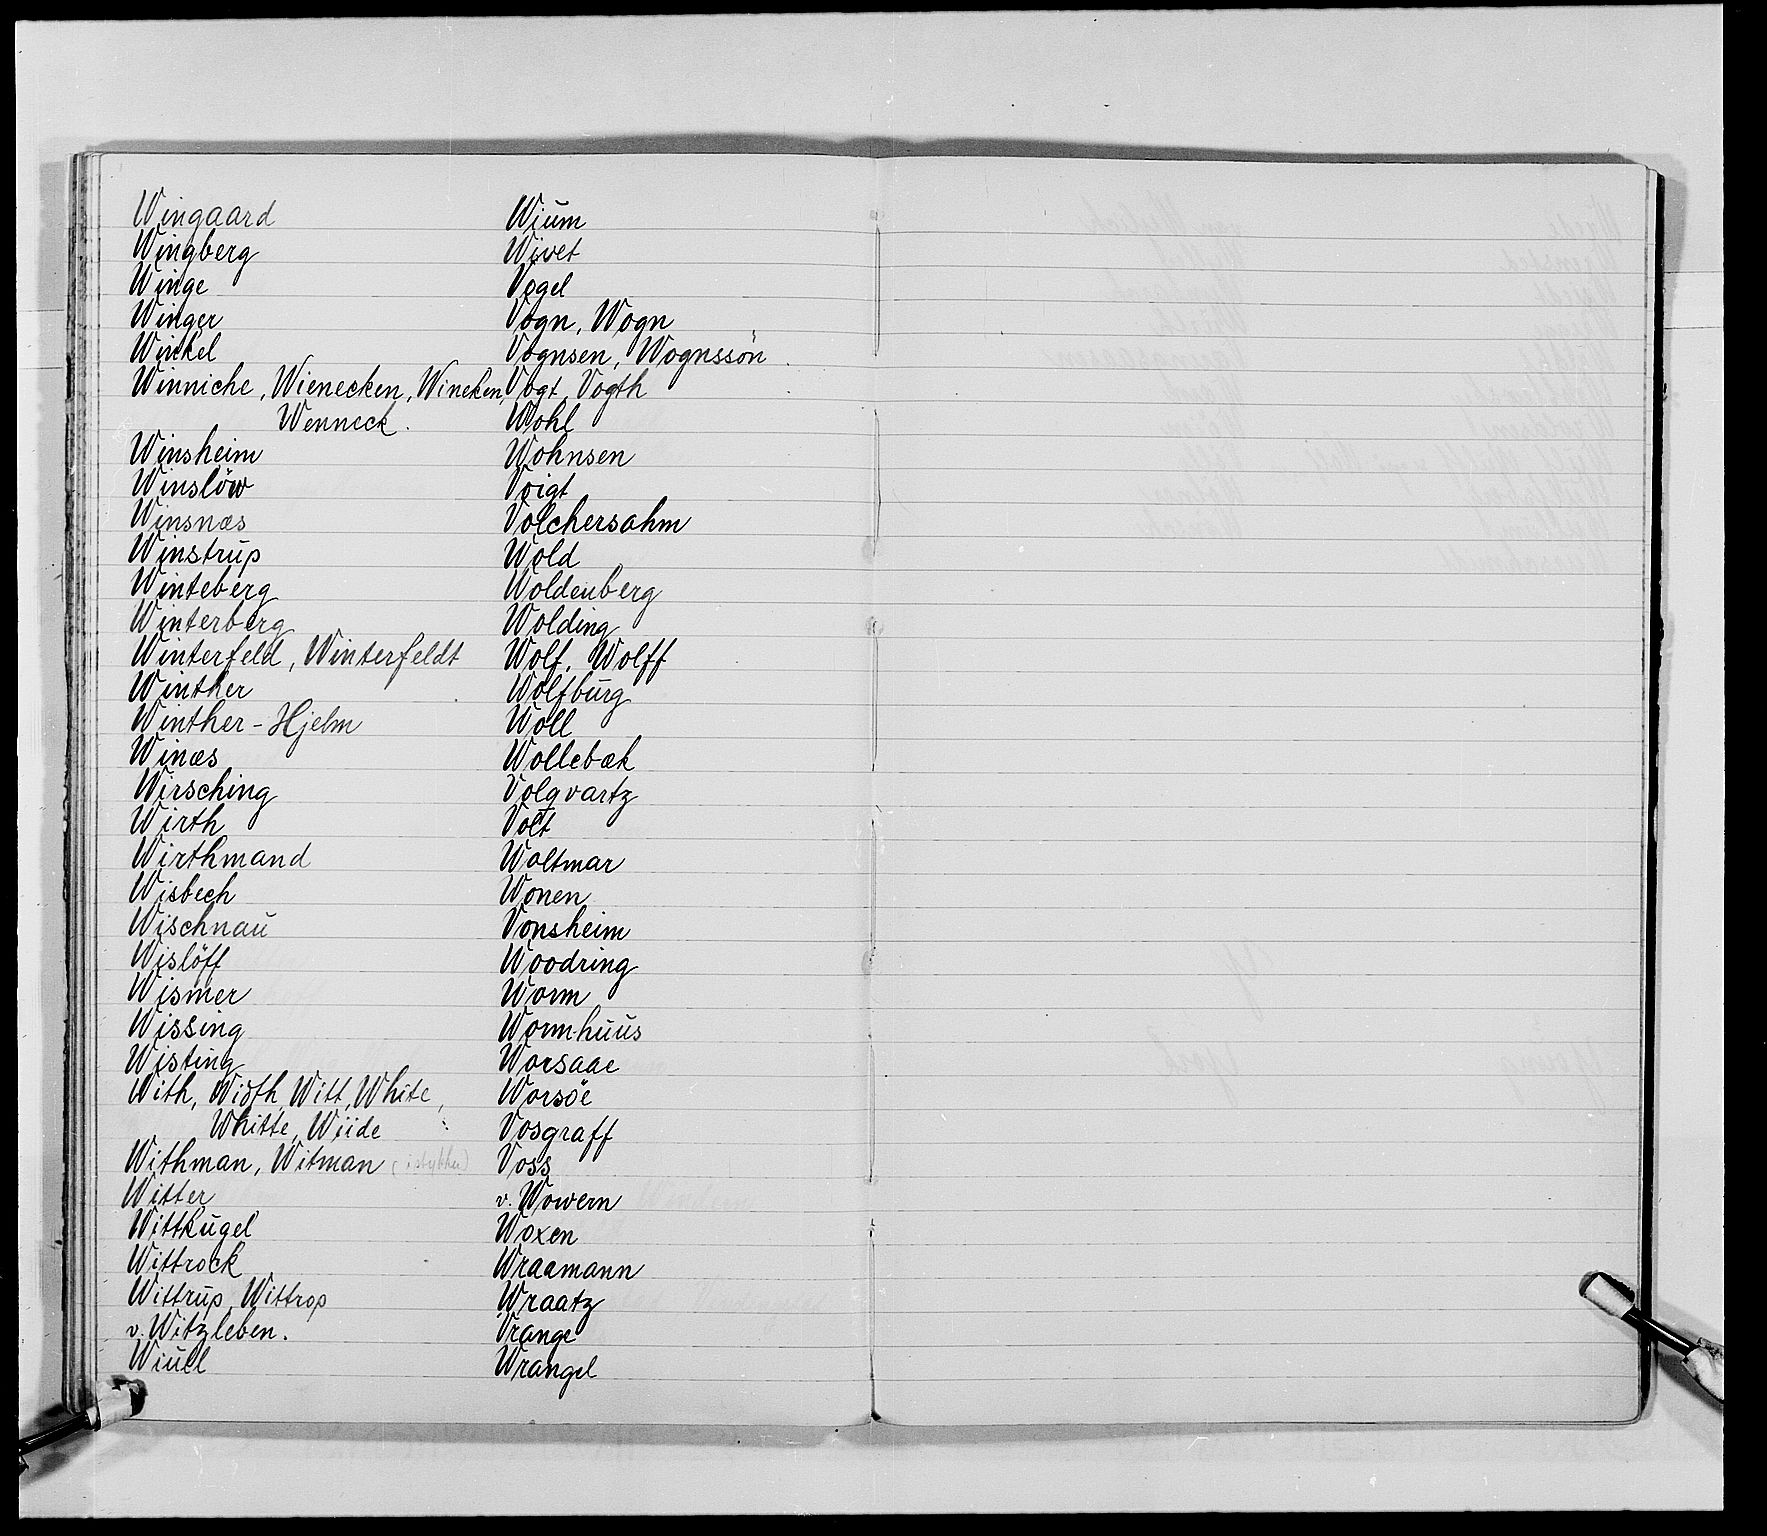 Wingaard
Wingberg
Winge
Winger
Winkel
Winniche, Wienecken, Wineken,
Wenneck.
Winsheim
Winslöw
Winsnæs
Winstrup
Winteberg
Winterberg
Winterfeld, Winterfeldt
Winther
Winther-Hjelm
Winæs
Wirsching
Wirth
Wirthmand
Wisbech
Wischnau
Wislöff
Wismer
Wissing
Wisting
With, Width, Witt, White,
Whitte, Wiide
Withman, Witman (i stykker)
Witter
Wittkugel
Wittrock
Wittrup, Wittrop
v. Witzleben.
Wiuel
Wium
Wivet
Vogel
Vogn, Wogn
Vognsen, Wognssön
Vogt, Vogth
Wohl
Wohnsen
Voigt
Volchersahm
Wold
Woldenberg
Wolding
Wolf, Wolff
Wolfburg
Woll
Wollebæk
Volqvartz
Volt
Woltmar
Wonen
Vonsheim
Woodring
Worm
Worm-huus
Worsaae
Worsöe
Vosgraff
Voss
v. Wowern
Woxen
Wraamann
Wraatz
Vrange
Wrangel